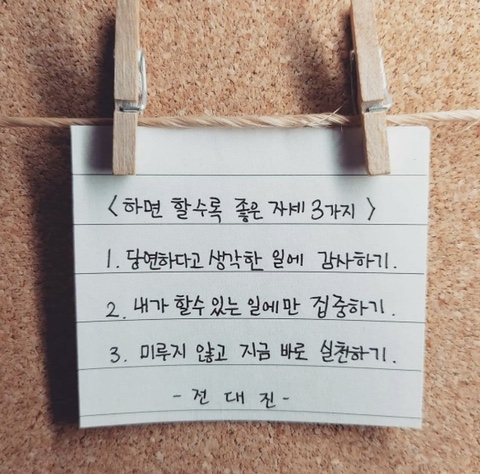 <하면 할수록 좋은 자세 3가지>
1. 당연하다고 생각한 일에 감사하기.
2. 내가 할수 있는 일에만 집중하기.
3. 미루지 않고 지금 바로 실천하기.
- 전 대 진 -